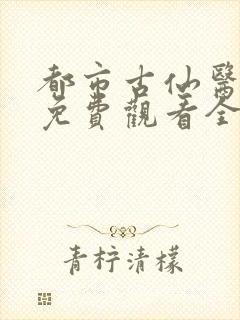 都市古仙醫
免費觀看全
青柠清檬